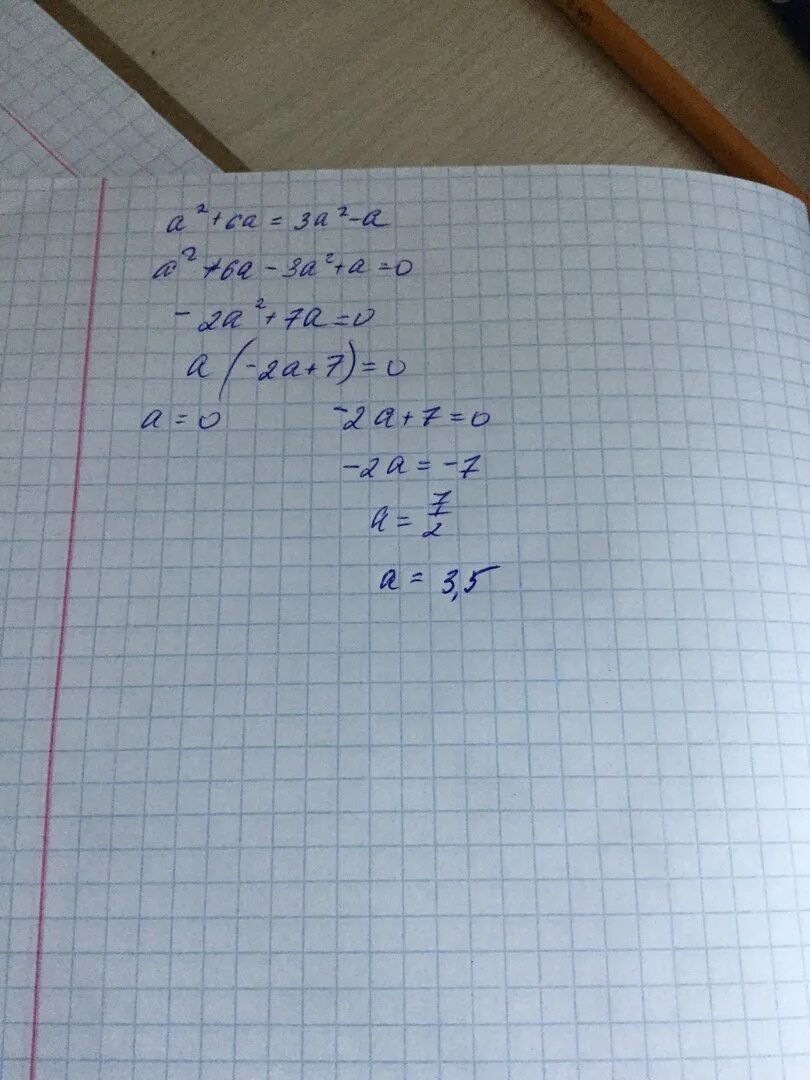 a² + 6a = 3a² - a
a² + 6a - 3a² + a = 0
- 2a² + 7a = 0
a (-2a + 7) = 0
a = 0 -2a + 7 = 0
-2a = -7
a = 7/2
a = 3,5